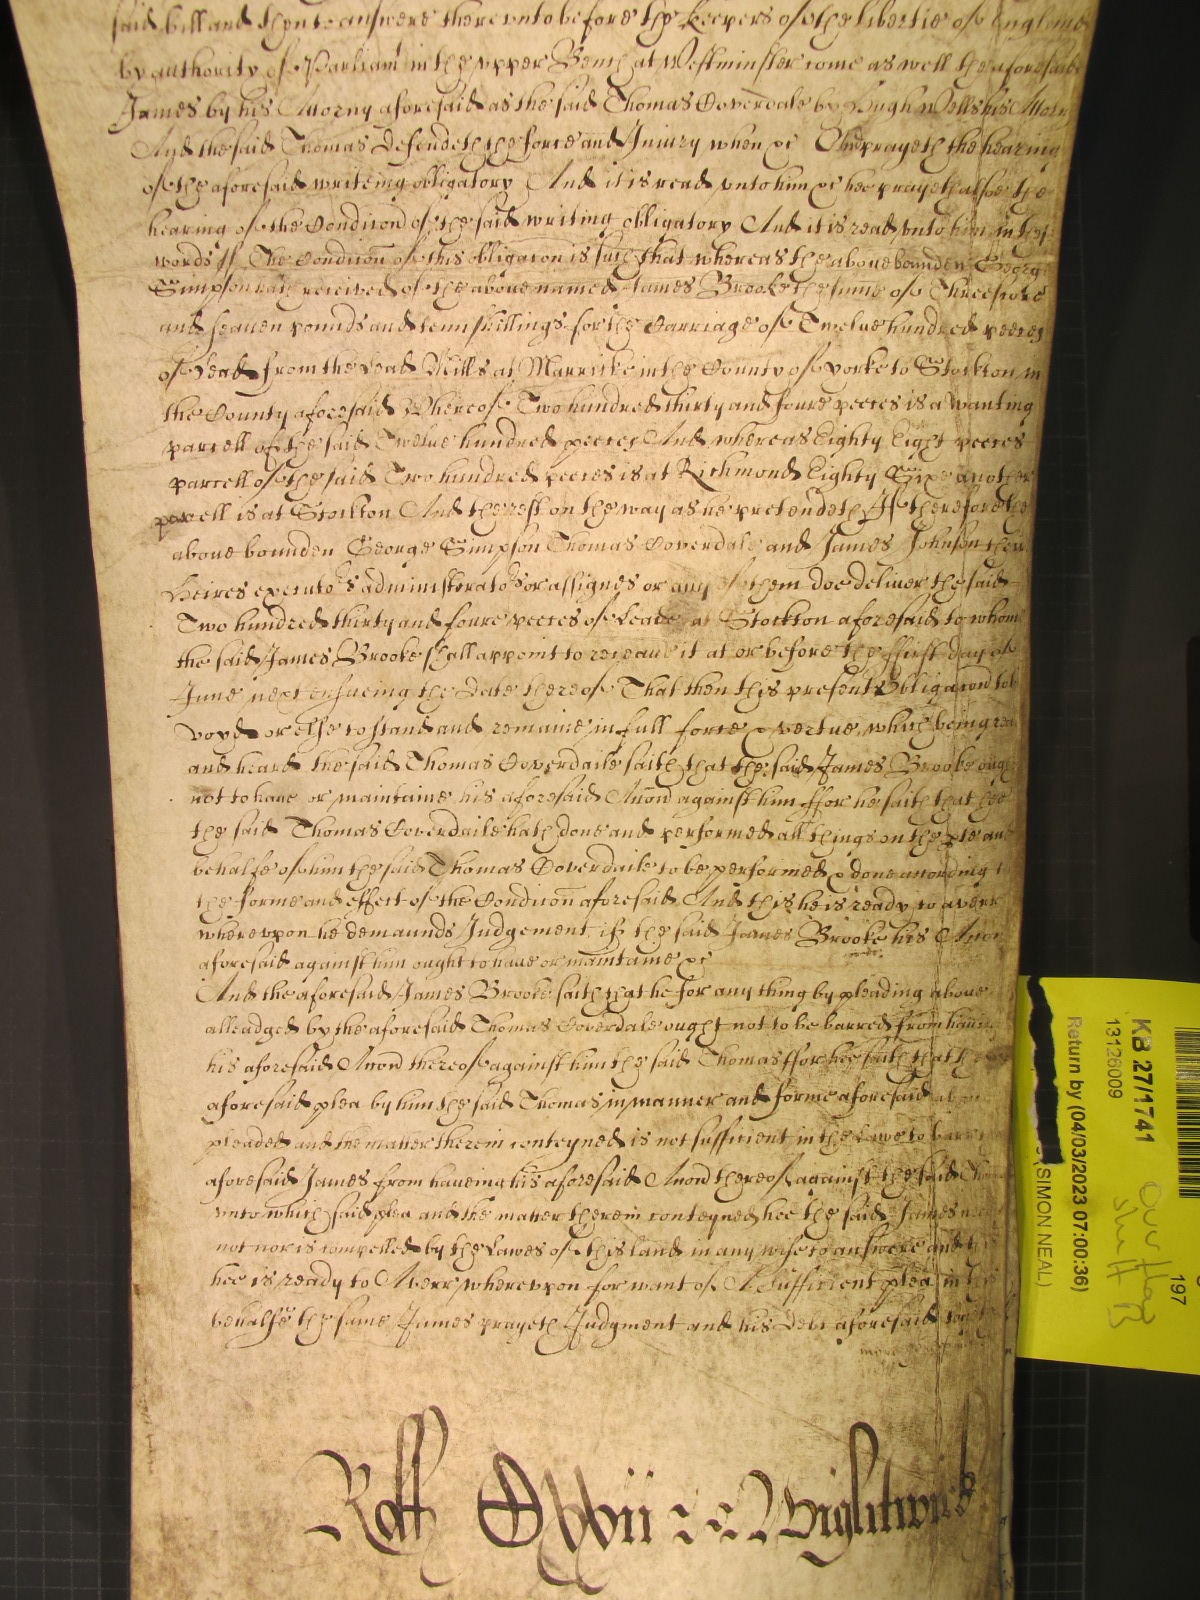 said bill and then to answere thereunto before the keepers of the libertie of England
by authority of Parliamt in the upper Bench at Westminster come as well the aforesaid
James by his Attorny aforesaid as the said Thomas Coverdale by Hugh Wells his Attorn
And the said Thomas Defendeth the force and Injury when &c And prayeth the hearing
of the aforesaid writeing obligatory And it is read unto him &c hee prayeth alsoe the
hearing of the Condicond of the said writing obligatory And it is read unto him in thes
words ss The Condicon of this obligacon is such that whereas the above bounden George
Simpson hath received of the above named James Brooke the sume of Threescore
and seaven pounds and tenn shillings for the Carriage of Twelve hundred peeces
of Lead from the Lead Mills at Marricke in the County of Yorke to Stockton in
the County aforesaid Whereof Two hundred thirty and foure peeces is a wanting
parcell of the said Twelve hundred peeces And whereas Eighty Eight peeces
parcell of the said Two hundred peeces is at Richmond Eighty Sixe another
parcell is at Stockton And the rest on the way as he pretendeth If therefore the
above bounden George Simpson Thomas Coverdale and James Johnson their
Heires executors administerators or assignes or any of them doe deliver the said
Two hundred thirty and foure peeces of Leade at Stockton aforesaid to whom
the said James Brooke shall appoint to receave it at or before the ffirst day of
June next ensueing the Date thereof That then this present Obligacond to be
voyd or else to stand and remaine in full force & vertue, which being read
and heard the said Thomas Coverdaile saith that the said James Brooke ought
not to have or maintaine his aforesaid Accond against him ffor he saith that hee
the said Thomas Coverdaile hath done and performed all things on the pte and
behalfe of him the said Thomas Coverdaile to be performed & done according to
the forme and effect of the Condicon aforesaid And this he is ready to averr
whereupon he demaunds Judgement if the said James Brooke his Accon
aforesaid against him ought to have or maintaine &c
And the aforesaid James Brooke saith that he for any thing by pleading above
alleadged by the aforesaid Thomas Coverdale ought not to be barred from haveing
his aforesaid Accond thereof against him the said Thomas ffor hee saith that the
aforesaid plea by him the said Thomas in manner and forme aforesaid above
pleaded and the matter therein conteyned is not sufficient in the Lawe to barr the
aforesaid James from haveing his aforesaid Accond thereof against the said Thomas
unto which said plea and the matter therein conteyned hee the said James need
not nor is compelled by the Lawes of this land in any wise to answere and this
hee is ready to Averr whereupon for want of A sufficient plea in this
behalfe the same James prayeth Judgment and his Debt aforesaid together
Roll Wightwick
KB 27/1741
13126009
Return by (04/03/2023 07:00:36)
(SIMON NEAL)
197